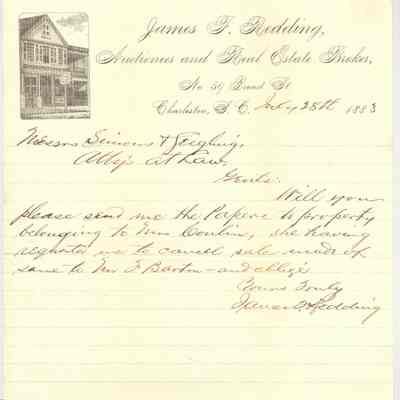 James F. Redding,
Auctioneer and Real Estate Broker,
No 59 Broad St
Charleston, S. C. July 28th 1883
Messrs Simons & Siegling,
Attys at Law,
Gents:
Will you
please send me the Papers to property
belonging to Mrs Conlin, she having
requested me to cancel sale made of
same to Mr F Barton - and oblige
Yours Truly
James F Redding